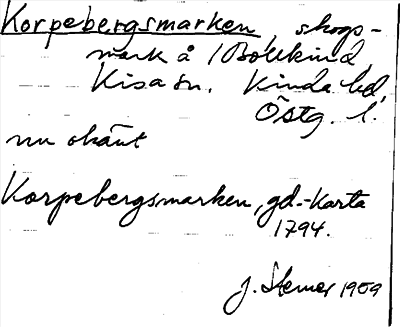 Korpebergsmarken, skogs-
mark å 1 Bollkind,
Kisa sn. Kinda hd,
Östg. l.
nu okänt
Korpebergsmarken, gd.-Karta
1794.
J. Stemer 1909